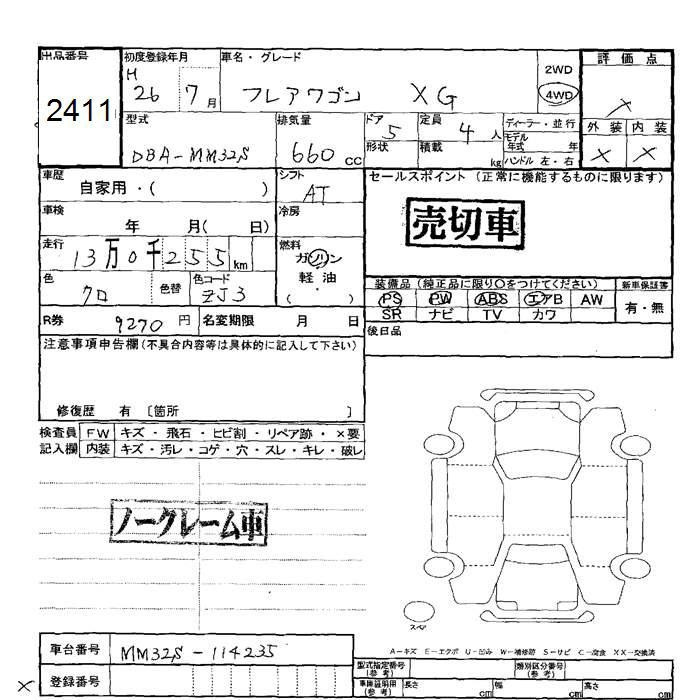 出品番号
2411
初度登録年月
H
26 7月
車名・グレード
フレアワゴン XG
2WD
4WD
評価点
×
外装 内装
× ×
型式
DBA-MM32S
排気量
660 CC
ドア
5
形状
定員
4人
積載
kg
ディーラー・並行
モデル
年式 年
ハンドル 左・右
車歴
自家用・( )
シフト
AT
セールスポイント (正常に機能するものに限ります)
売切車
車検
年 月( 日)
冷房
走行
13万0千255km
燃料
ガソリン
軽・油
( )
色
クロ
色替
色コード
ZJ3
装備品 (純正品に限り○をつけてください)
新車保証書
PS PW ABS エアB AW
SR ナビ TV カワ
有・無
R券
9270円
名変期限 月 日
後日品
注意事項申告欄(不具合内容等は具体的に記入して下さい)
修復歴 有 〔箇所 〕
検査員
記入欄
FW キズ・飛石・ヒビ割・リペア跡・×要
内装 キズ・汚レ・コゲ・穴・スレ・キレ・破レ
ノークレーム車
スペア
A-キズ E-エクボ U-凹み W-補修跡 S-サビ C-腐食 XX-交換済
車台番号
MM32S-114235
× 登録番号
型式指定番号
(参考)
類別区分番号
(参考)
車庫証明用
(参考)
長さ cm 幅 cm 高さ cm